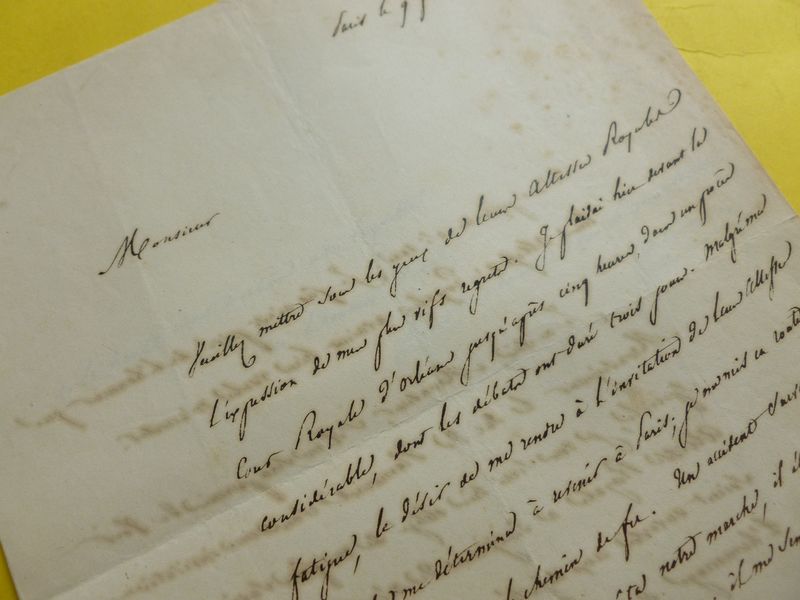 Paris le 9
Monsieur
Veuillez mettre sous les yeux de leurs Altesses Royales
l'expression de mes plus vifs regrets. Je plaidai hier devant la
Cour Royale d'Orléans jusqu'après cinq heures, dans un procès
considérable, dont les débats ont duré trois jours. Malgré ma
fatigue, le désir de me rendre à l'invitation de leurs Altesses
me détermina à revenir à Paris; je me mis en route
chemin de fer. Un accident
notre marche, il
il me